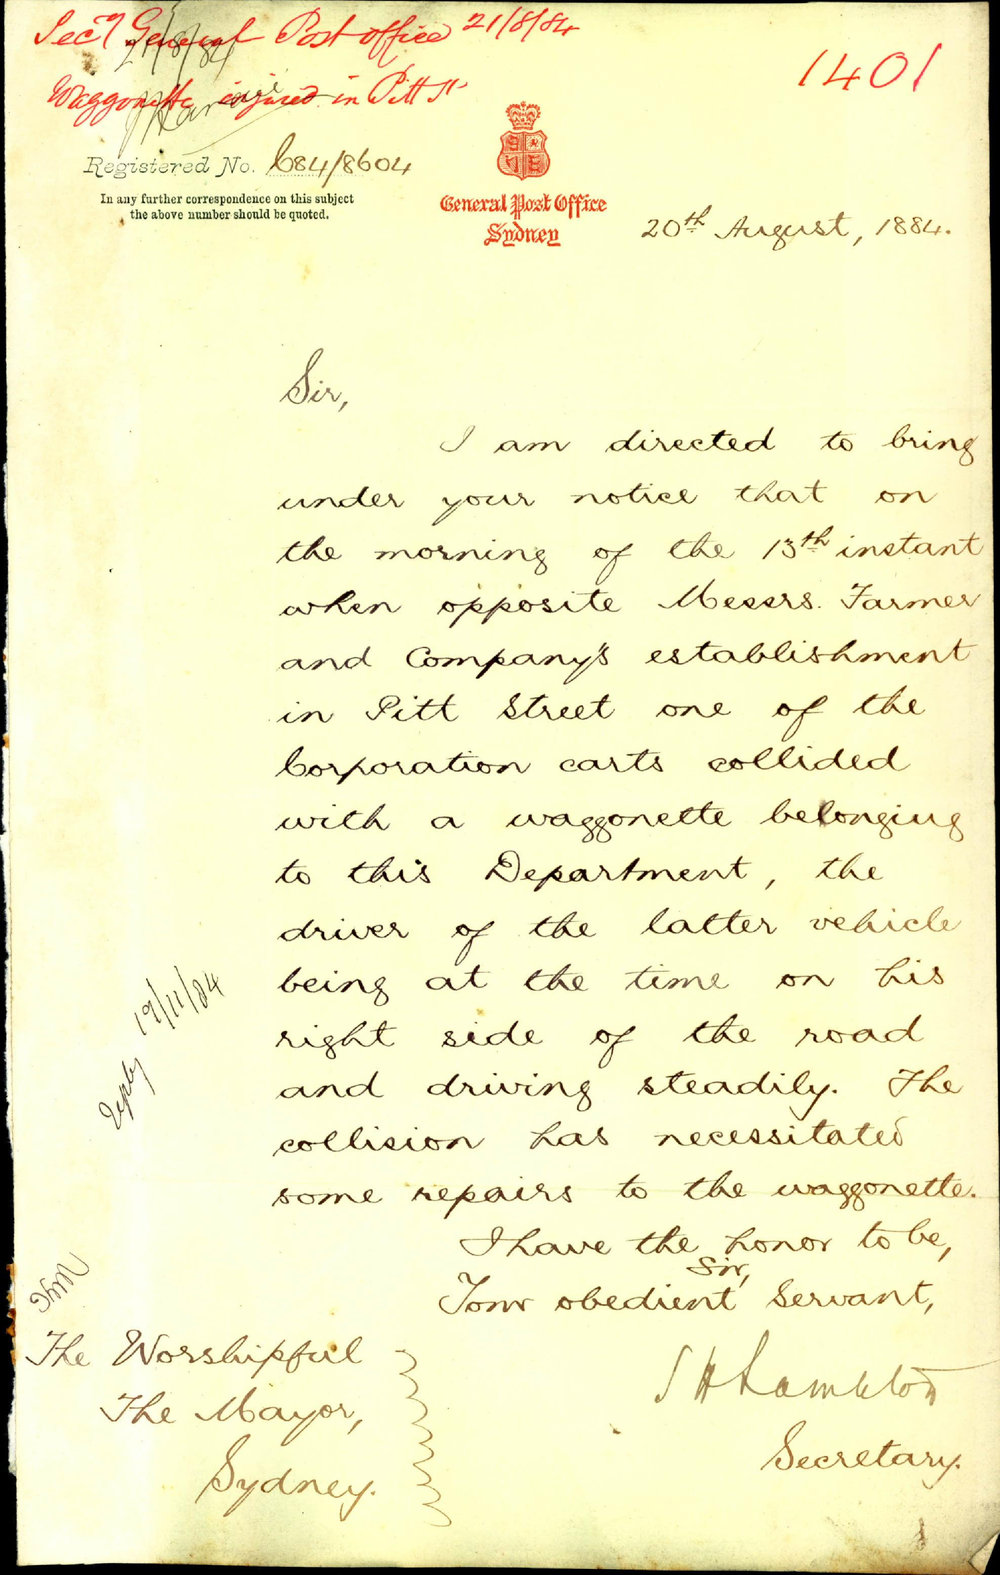 Secy General Post office 21/8/84
Waggonette injured in Pitt St
1401
21/8/84
Registered No. C84/8604
In any further correspondence on this subject
the above number should be quoted.
General Post Office
Sydney
20th August, 1884.
Sir,
I am directed to bring
under your notice that on
the morning of the 13th instant
when opposite Messrs. Farmer
and Company's establishment
in Pitt Street one of the
Corporation carts collided
with a waggonette belonging
to this Department, the
driver of the latter vehicle
being at the time on his
right side of the road
and driving steadily. The
collision has necessitated
some repairs to the waggonette.
I have the honor to be,
Sir,
Your obedient Servant,
S H Lambton
Secretary.
Reply 19/11/84
The Worshipful
The Mayor,
Sydney.